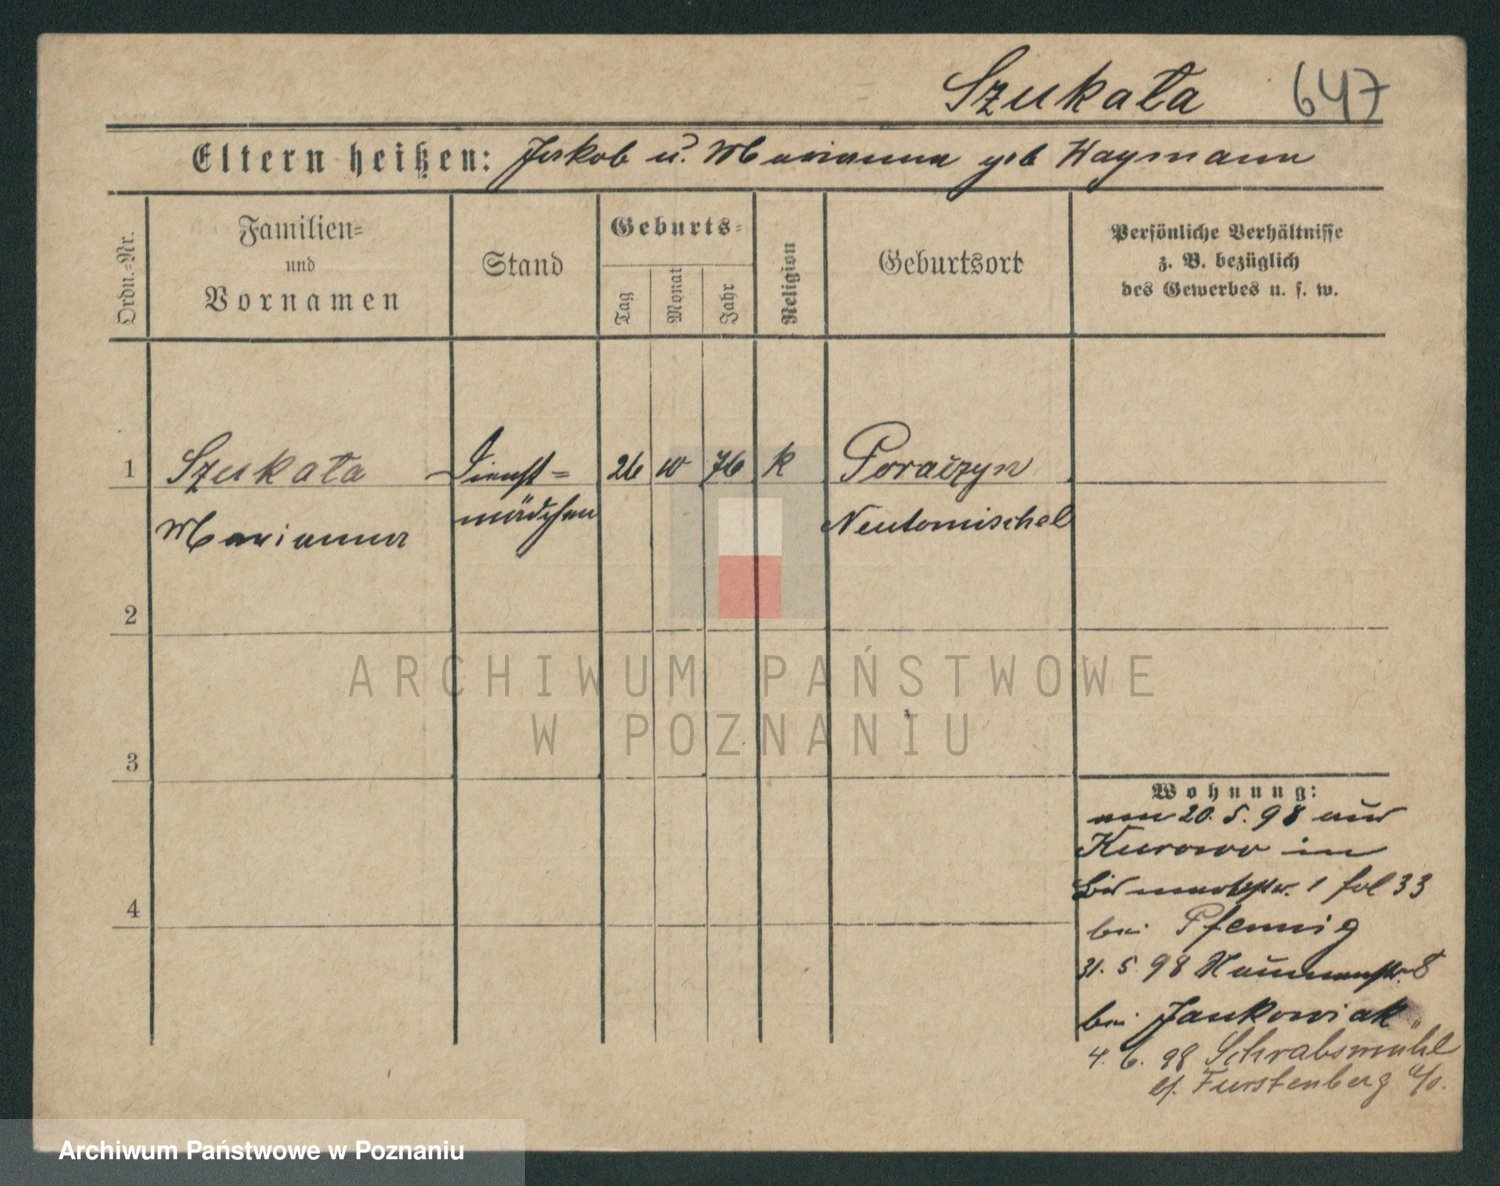 Szukała 647
Eltern heißen: Jakob u. Marianna geb Haymann
Ordn.-Nr.
Familien-
und
Vornamen
Stand
Geburts-
Tag
Monat
Jahr
Religion
Geburtsort
Persönliche Verhältnisse
z. B. bezüglich
des Gewerbes u. s. w.
1 Szukała Dienst= 26 10 76 k Porażyn
Marianna mädchen Neutomischel
2
3
4
Wohnung:
am 20. 5. 98 aus
Kurowo in
Bismarckstr. 1 fol 33
bei Pfennig
31. 5 98 Naumannstr. 8
bei Jankowiak
4. 6. 98 Schrabsmühl
Furstenberg a/o.
ARCHIWUM PAŃSTWOWE
W POZNANIU
Archiwum Państwowe w Poznaniu